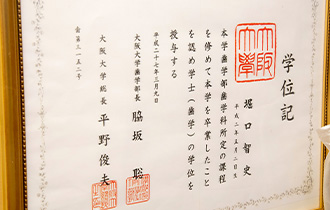 学位記
大阪大学
堀口智史
平成二年五月二日生
本学歯学部歯学科所定の課程
を修めて本学を卒業したこと
を認め学士（歯学）の学位を
授与する
平成二十七年三月
大阪大学歯学部長 脇坂聡
大阪大学総長 平野俊夫